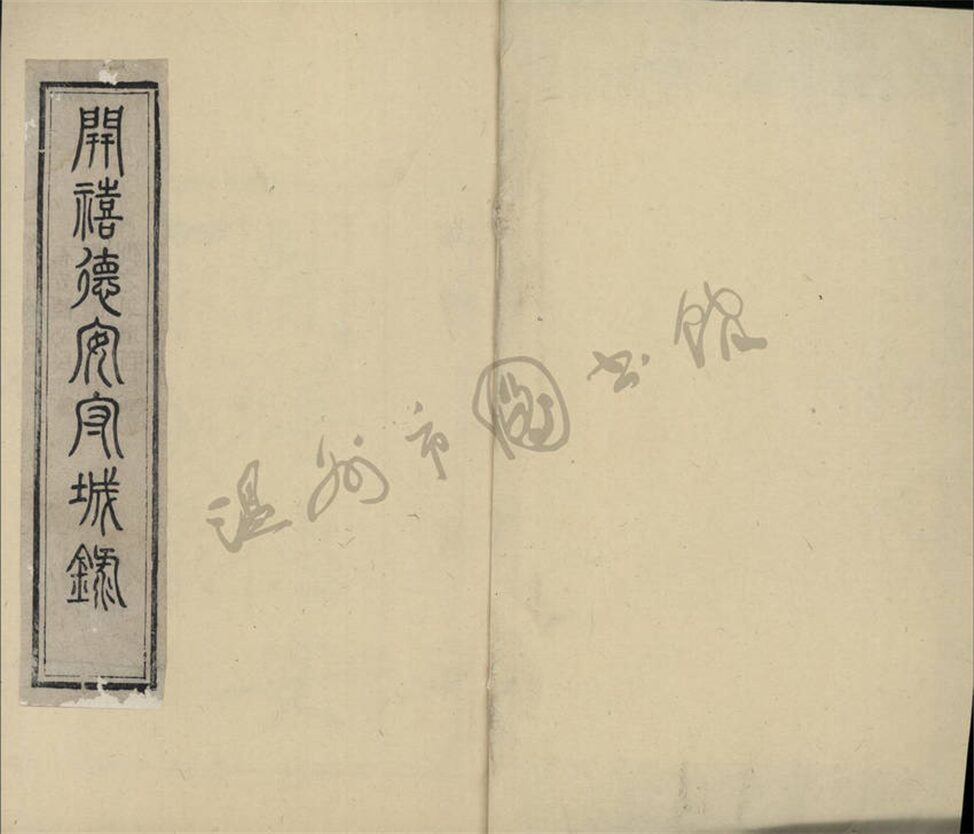 開禧德安守城錄
温州市图书馆